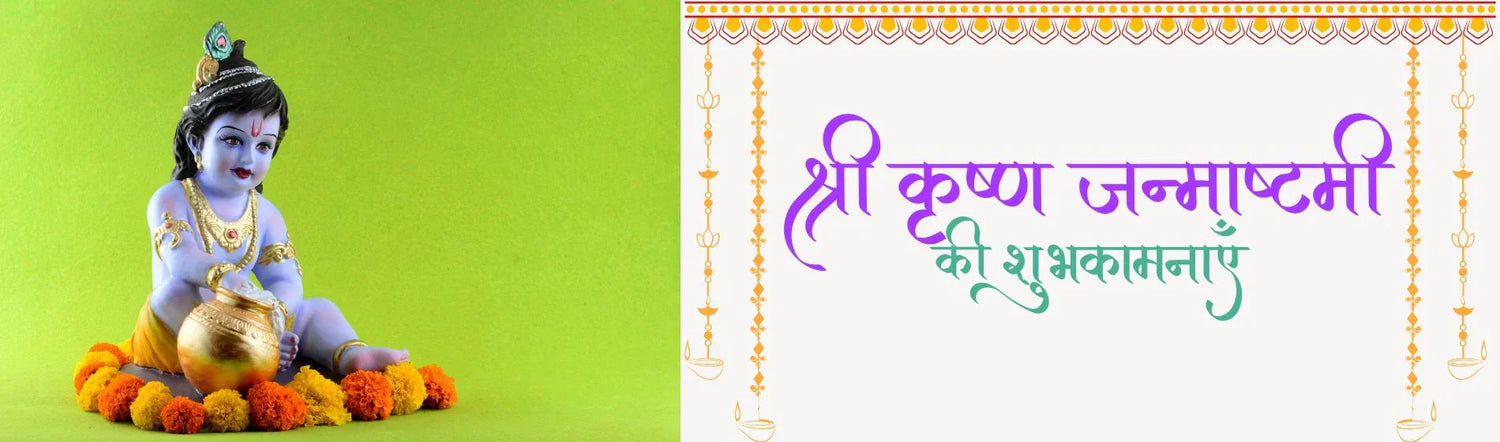 श्री कृष्ण जन्माष्टमी
की शुभकामनाएँ